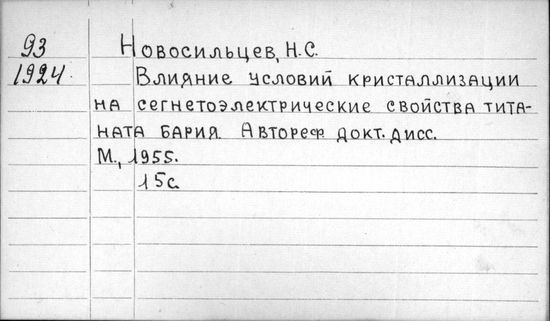 93 Новосильцев, Н.С.
1924. Влияние условий кристаллизации
на сегнетоэлектрические свойства тита-
ната бария. Автореф докт. дисс.
М., 1955.
15с.